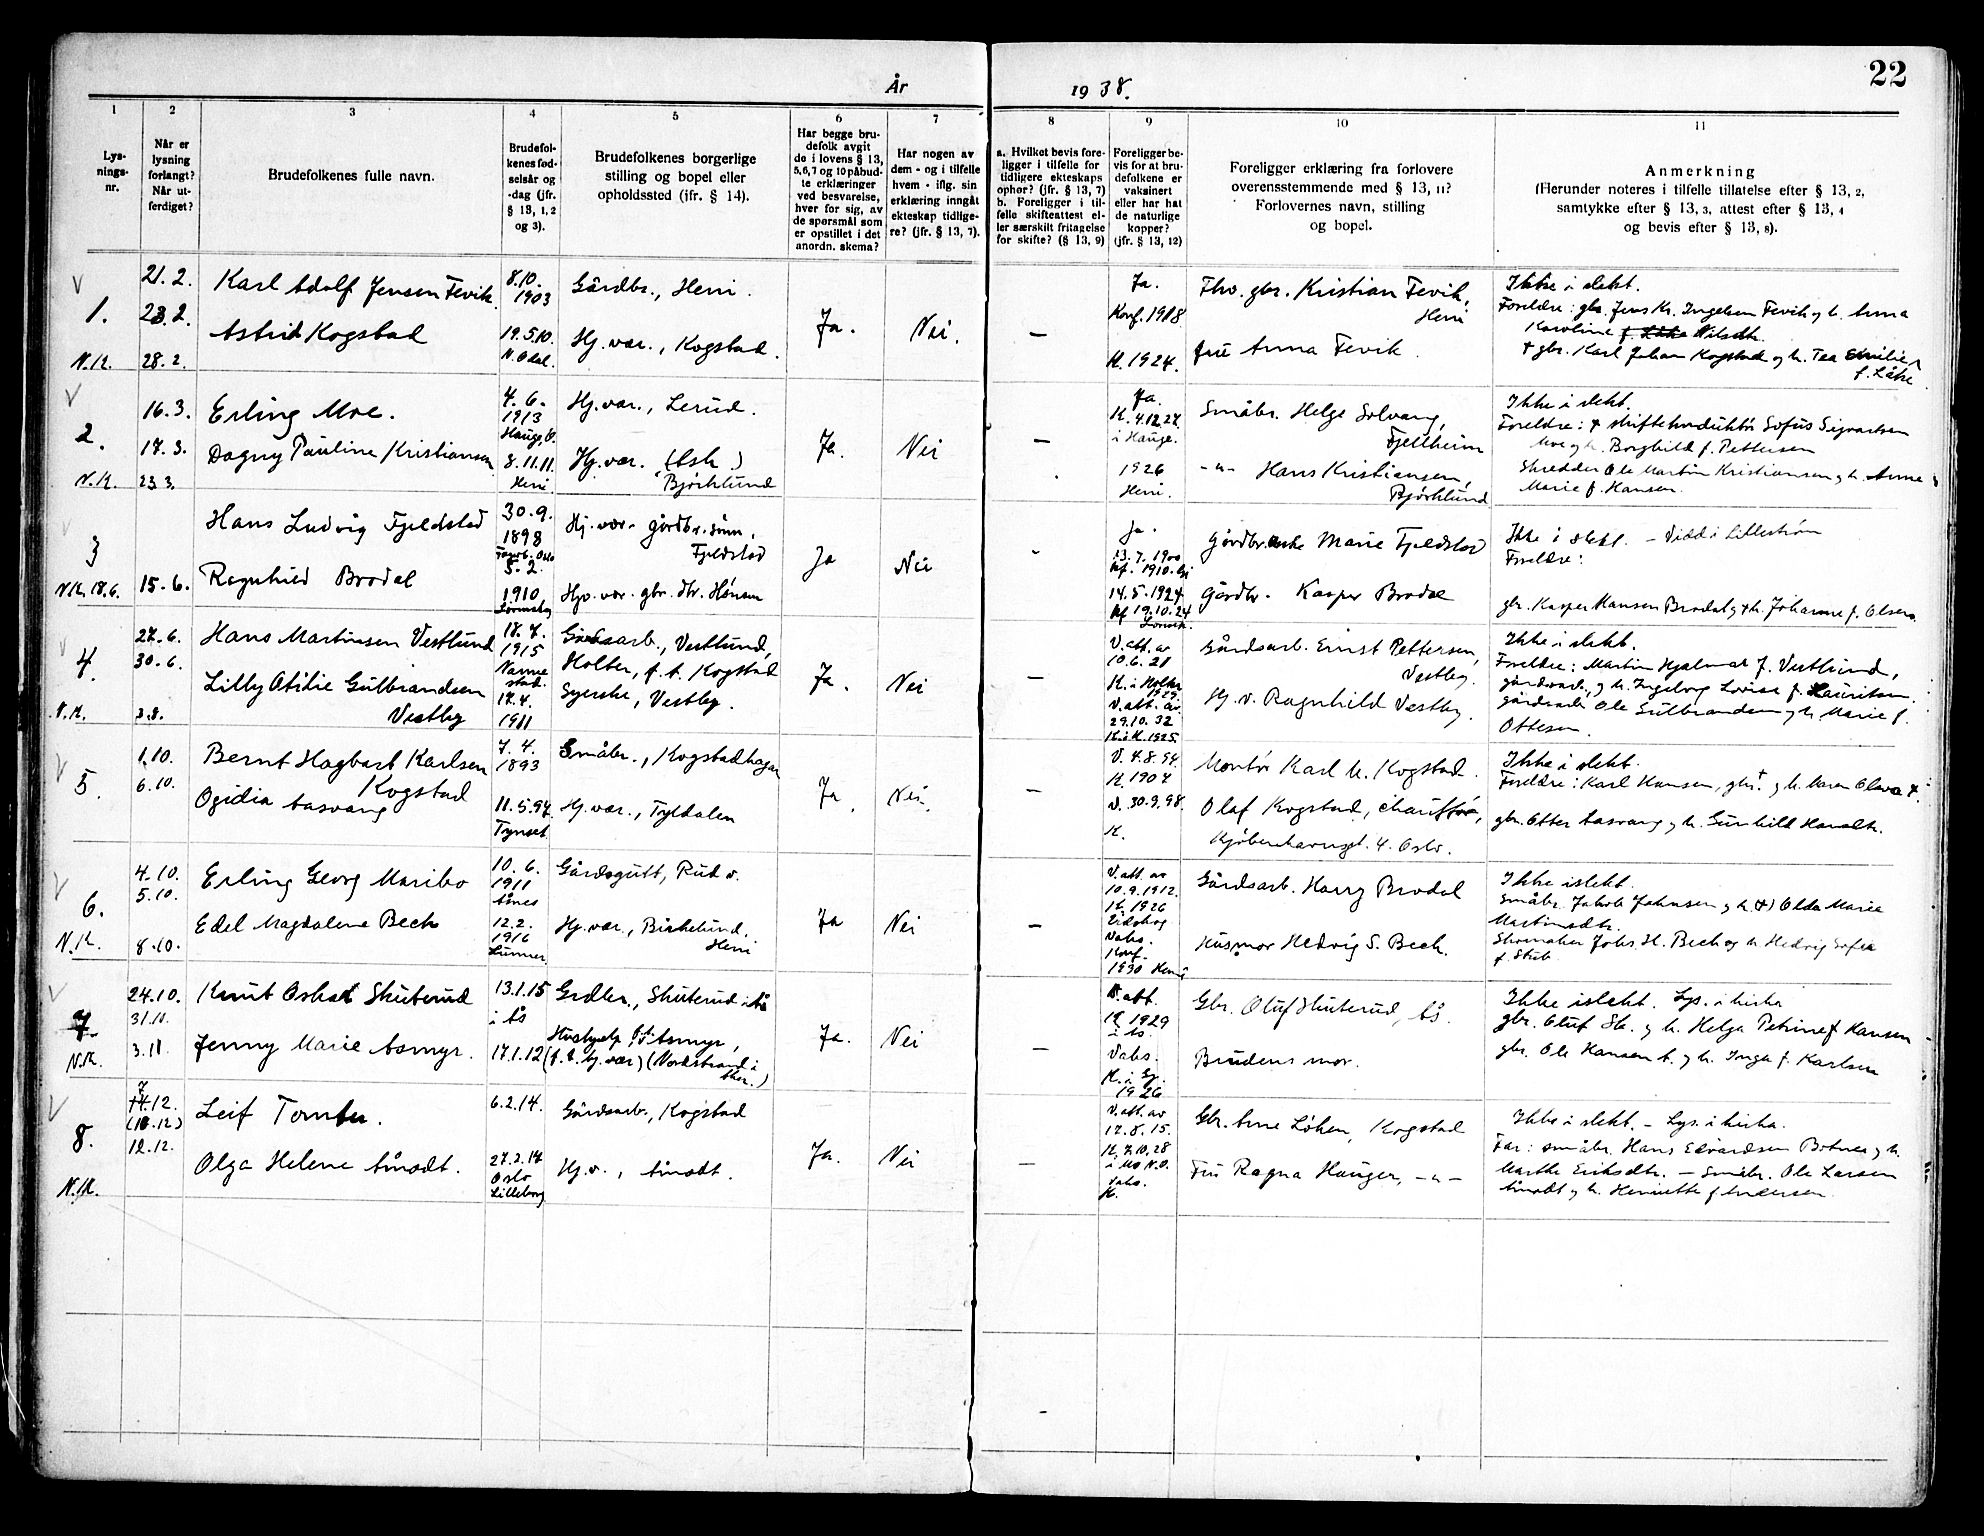 År 1938.
22
1 2 3 4 5 6 7 8 9 10 11
Lys-
nings-
nr.
Når er
lysning
forlangt?
Når ut-
ferdiget?
Brudefolkenes fulle navn.
Brudefol-
kenes fød-
selsår og
-dag (jfr.
§ 13, 1, 2
og 3).
Brudefolkenes borgerlige
stilling og bopel eller
opholdssted (jfr. § 14).
Har begge bru-
defolk avgit
de i lovens § 13,
5,6,7 og 10 påbud-
te erklæringer
ved besvarelse,
hver for sig, av
de spørsmål som
er opstillet i det
anordn. skema?
Har nogen av
dem - og i tilfelle
hvem - iflg. sin
erklæring inngåt
ekteskap tidlige-
re? (jfr. § 13, 7).
a. Hvilket bevis fore-
ligger i tilfelle for
tidligere ekteskaps
ophør? (jfr. § 13, 7)
b. Foreligger i til-
felle skifteattest el-
ler særskilt fritagelse
for skifte? (§ 13, 9)
Foreligger be-
vis for at bru-
defolkene er
vaksinert
eller har hat
de naturlige
kopper?
(jfr. § 13, 12)
Foreligger erklæring fra forlovere
overensstemmende med § 13, 11?
Forlovernes navn, stilling
og bopel.
Anmerkning
(Herunder noteres i tilfelle tillatelse efter § 13, 2,
samtykke efter § 13, 3, attest efter § 13, 4
og bevis efter § 13, 8).
1.
N.K.
21.2.
23.2.
28.2.
Karl Adolf Jensen Fevik
Astrid Kogstad
8.10.
1903
19.5.10.
N. Odal.
Gårdbr., Heni.
Hj.vær., Kogstad.
Ja.
Nei.
—
Ja.
Konf. 1918
K. 1924.
Fhv. gbr. Kristian Fevik,
Heni
Fru Anna Fevik.
Ikke i slekt.
Foreldre: gbr. Jens Kr. Ingebren Fevik og h. Anna
Karoline
+ gbr. Karl Johan Kogstad og h. Tea Emilie
f. Låke
2.
N.K.
16.3.
17.3.
23.3.
Erling Moe.
Dagny Pauline Kristiansen
4.6.
1913
8.11.11.
Heni.
Hj.vær., Lerud.
Hj.vær. (Ask)
Bjørklund
Ja.
Nei
—
Ja.
K. 4.12.27.
i Hauge.
1926
Heni.
Småbr. Helge Solvang,
Fjellheim
-"- Hans Kristiansen,
Bjørklund
Ikke i slekt.
Foreldre: + skiftekonduktør Sofus Sigvartsen
Moe og h. Borghild f. Pettersen
Skredder Ole Martin Kristiansen og h. Anne
Marie f. Hansen.
3
N.K. 18.6.
15.6.
Hans Ludvig Fjeldstad
Ragnhild Brodal
30.9.
1898
5.2.
1910
Hj.vær. gårdbr.sønn,
Fjeldstad
Hjv.vær. gbr. dtr. Hønsen
Ja
Nei
-
Ja.
13.7.1900
kf. 1910.
14.5.1924
kf 19.10.24
Gårdbr.enke Marie Fjeldstad
Gårdbr. Kasper Brodal
Ikke i slekt. — Viddi Lillestrøm
Foreldre:
gbr. Kasper Hansen Brodal og + h. Johanne f. Olsen
4.
N.K.
27.6.
30.6.
3.8.
Hans Martinsen Vestlund
Lilly Otilie Gulbrandsen
Vestby
18.7.
1915
Nanne
stad.
17.4.
1911
Gårdsarb., Vestlund,
Holter, f. t. Kogstad
Syerske, Vestby.
Ja.
Nei
—
V. att. av
10.6.21
K. i Holter
1929.
V. att. av
29.10.32
K. i H. 1925.
Gårdsarb. Ernst Pettersen,
Vestby.
Hj. v. Ragnhild Vestby.
Ikke i slekt.
Foreldre: Martin Hjalmar f. Vestlund,
gårdsarb., og h. Ingeborg Lovise f. Lauritsen.
gårdsarb. Ole Gulbrandsen og h. Marie f.
Ottesen.
5.
1.10.
6.10.
Bernt Hagbart Karlsen
Kogstad
Ogidia Aasvang
7.4.
1893
11.5.94.
Tynset
Småbr., Kogstadhagan
Hj.vær., Tyldalen
Ja.
Nei.
—
V. 4.8.94
K. 1907
V. 30.9.98.
K.
Montør Karl H. Kogstad.
Olaf Kogstad, chauffør,
Kjøbenhavngt. 4. Oslo.
Ikke i slekt.
Foreldre: Karl Hansen, gbr.+ og h. Maren Olava +.
gbr. Otter Aasvang og h. Gunhild Hansdtr.
6.
N.K.
4.10.
5.10.
8.10.
Erling Georg Maribo
Edel Magdalene Bech
10.6.
1911
Årnes
12.2.
1916
Lunner
Gårdsgutt, Rud ø.
Hj.vær., Birkelund.
Heni
Ja
Nei
—
V. att. av
10.9.1912.
K. 1926
Eidskog
Vaks.
Konf.
1930 Heni
Gårdsarb. Harry Brodal
Husmor Hedvig S. Bech.
Ikke i slekt.
Småbr. Jakob Johnsen og h. +) Olda Marie
Martinsdtr.
Skomaker Johs. H. Bech og h. Hedvig Sofie
f. Stub
7.
N.K.
24.10.
31.10.
3.11.
Knut Oskar Skuterud
Jenny Marie Asmyr.
13.1.15
i Ås
17.1.12
Grdbr., Skuterud i Ås
Hushjelp Asmyr,
(f. t. hj.vær) (Nordstrand i
Aker.)
Ja.
Nei
—
V. att.
K. 1929
i Ås.
Vaks.
K. i Gj.
1926
Gbr. Oluf Skuterud, Ås.
Brudens mor.
Ikke i slekt. Lys. i kirka
gbr. Oluf Sk. og h. Helga Petrine f. Hansen
gbr. Ole Hansen A. og h. Inga f. Karlsen
8.
N.K.
7
14.12.
(10.12)
12.12.
Leif Tomter.
Olga Helene Åmodt.
6.2.14.
27.2.14
Oslo
Lilleborg
Gårdsarb., Kogstad
Hj.v., Åmodt.
Ja.
Nei
—
V. att. av
17.8.15.
K. 7.10.28
i Mo N.O.
Vaks.
K.
Gbr. Arne Løken, Kogstad
Fru Ragna Hauger, -"-
Ikke i slekt. — Lys. i kirka.
Far: småbr. Hans Edvardsen Botner og h.
Marthe Eriksdtr. — Småbr. Ole Larsen
Åmodt og h. Henriette f. Andersen.